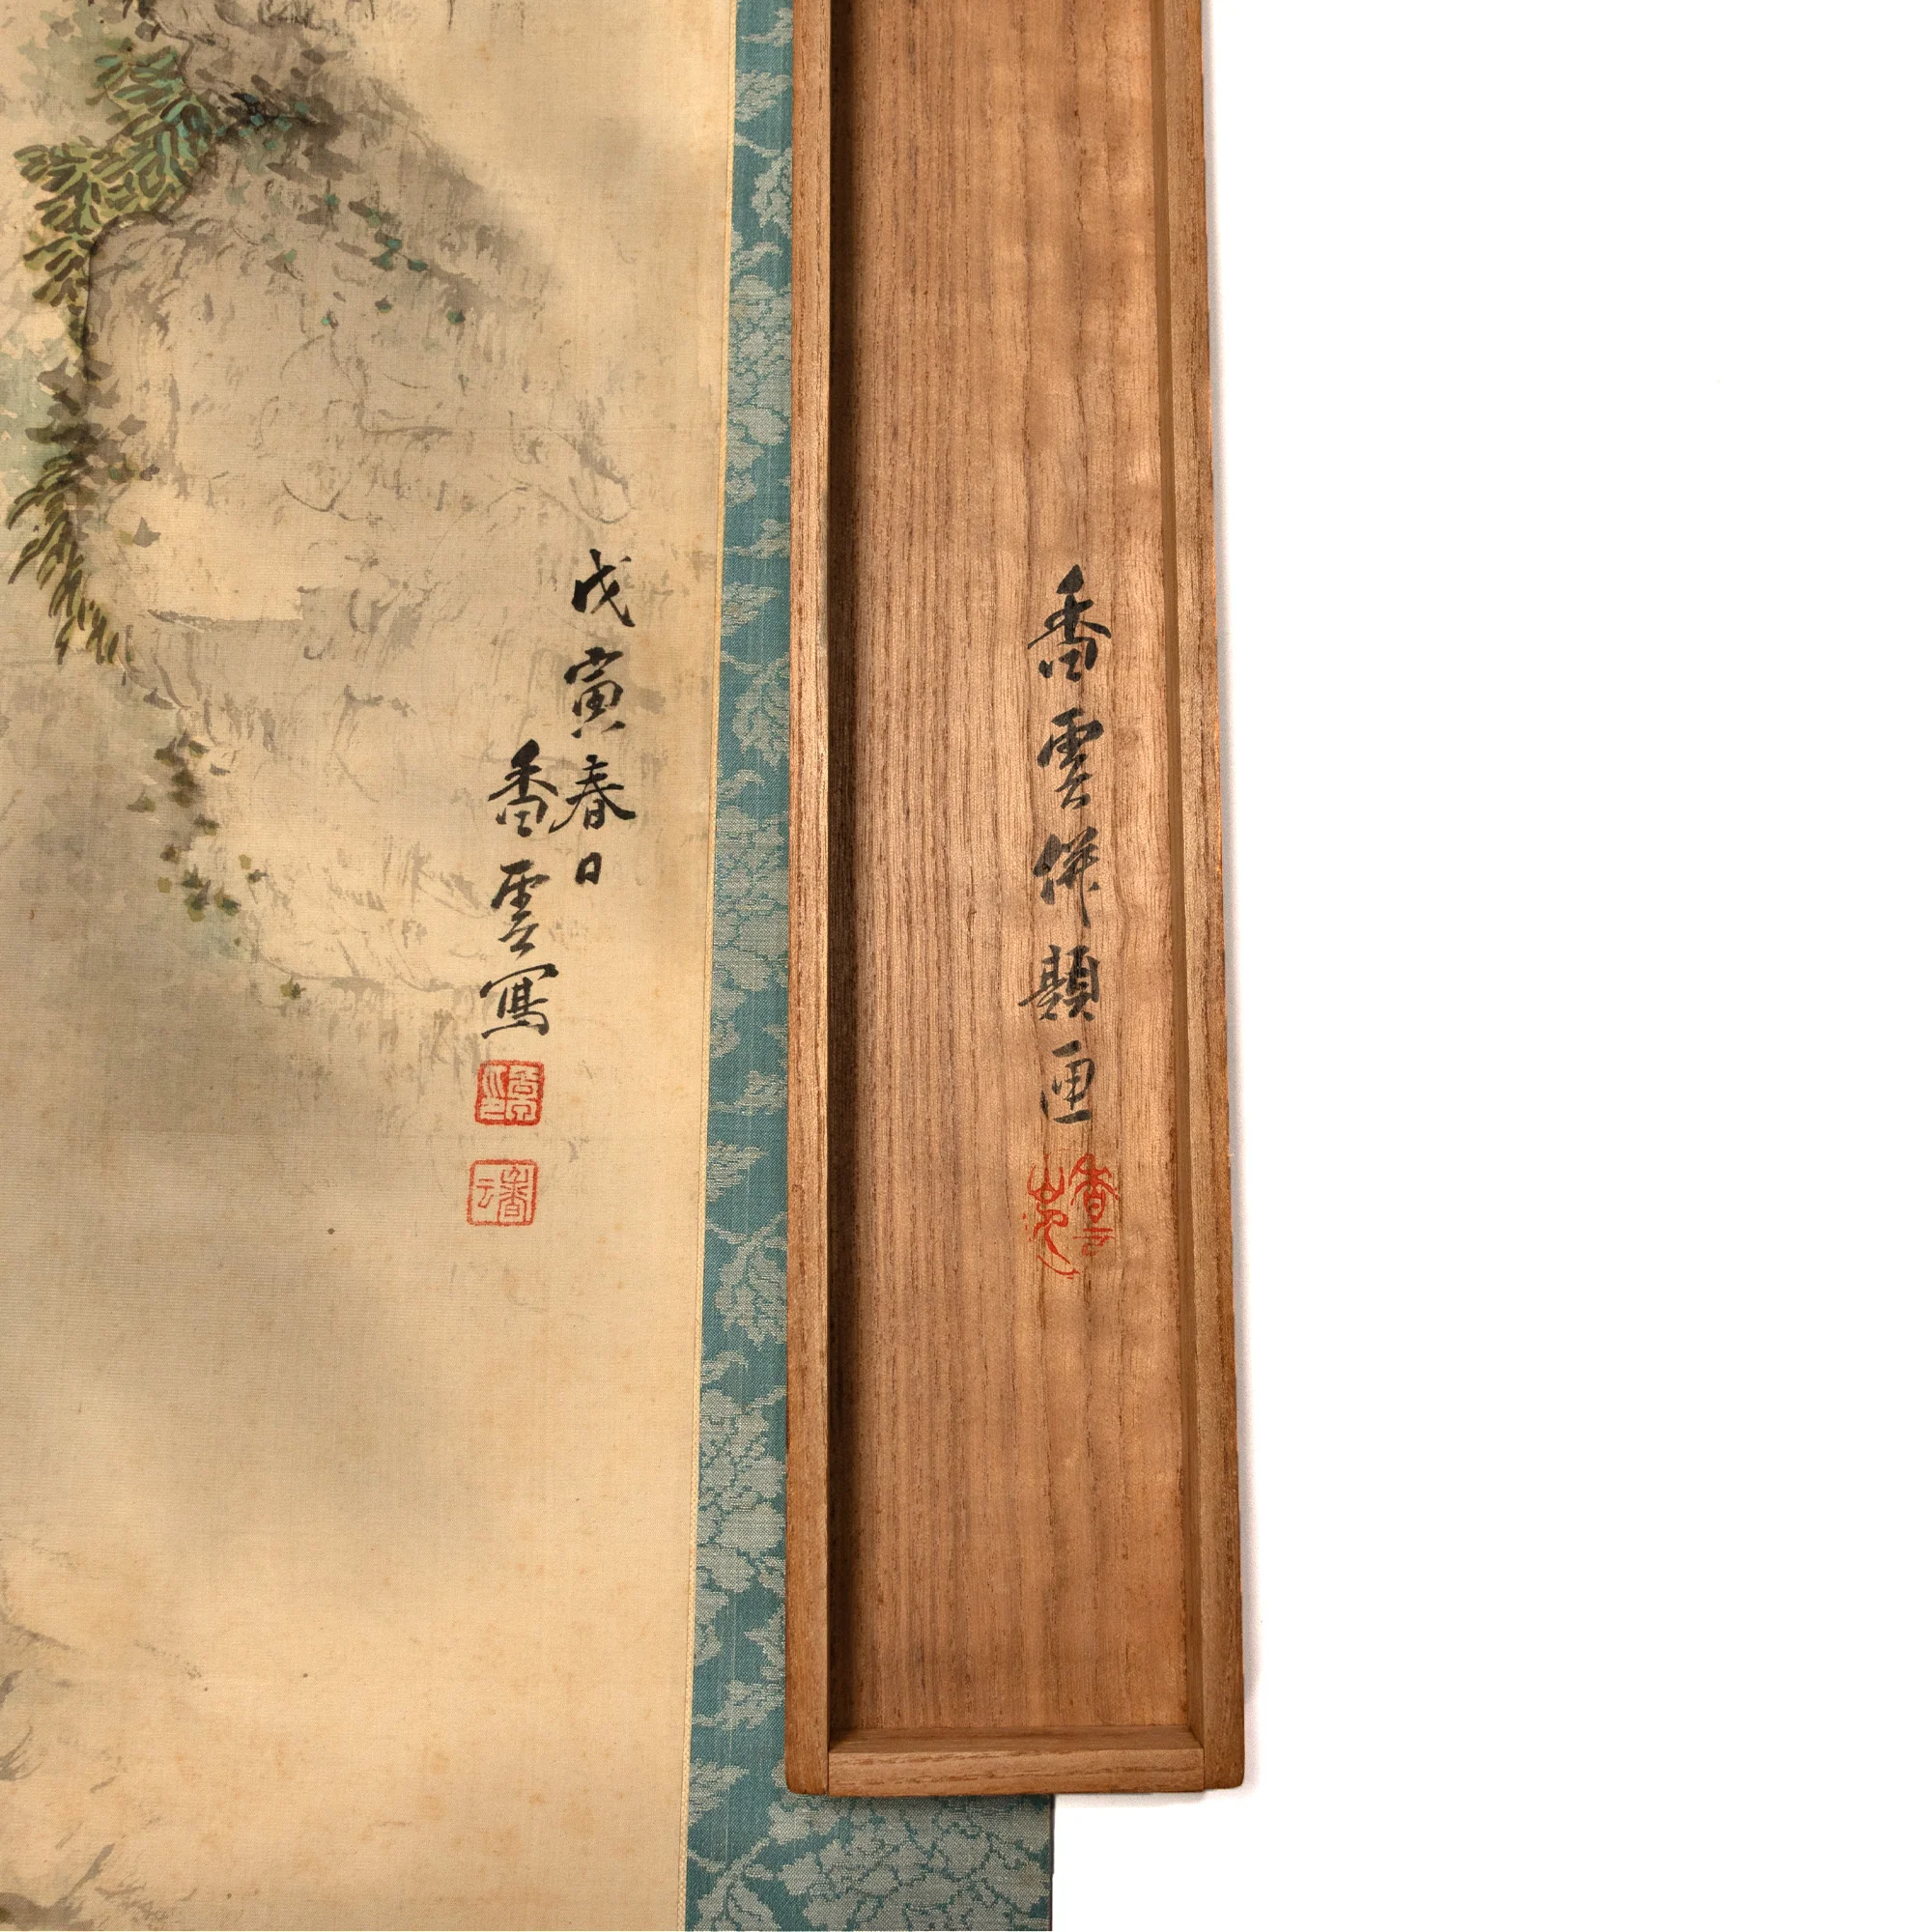 戊寅春日
香雲寫
香雲併題函